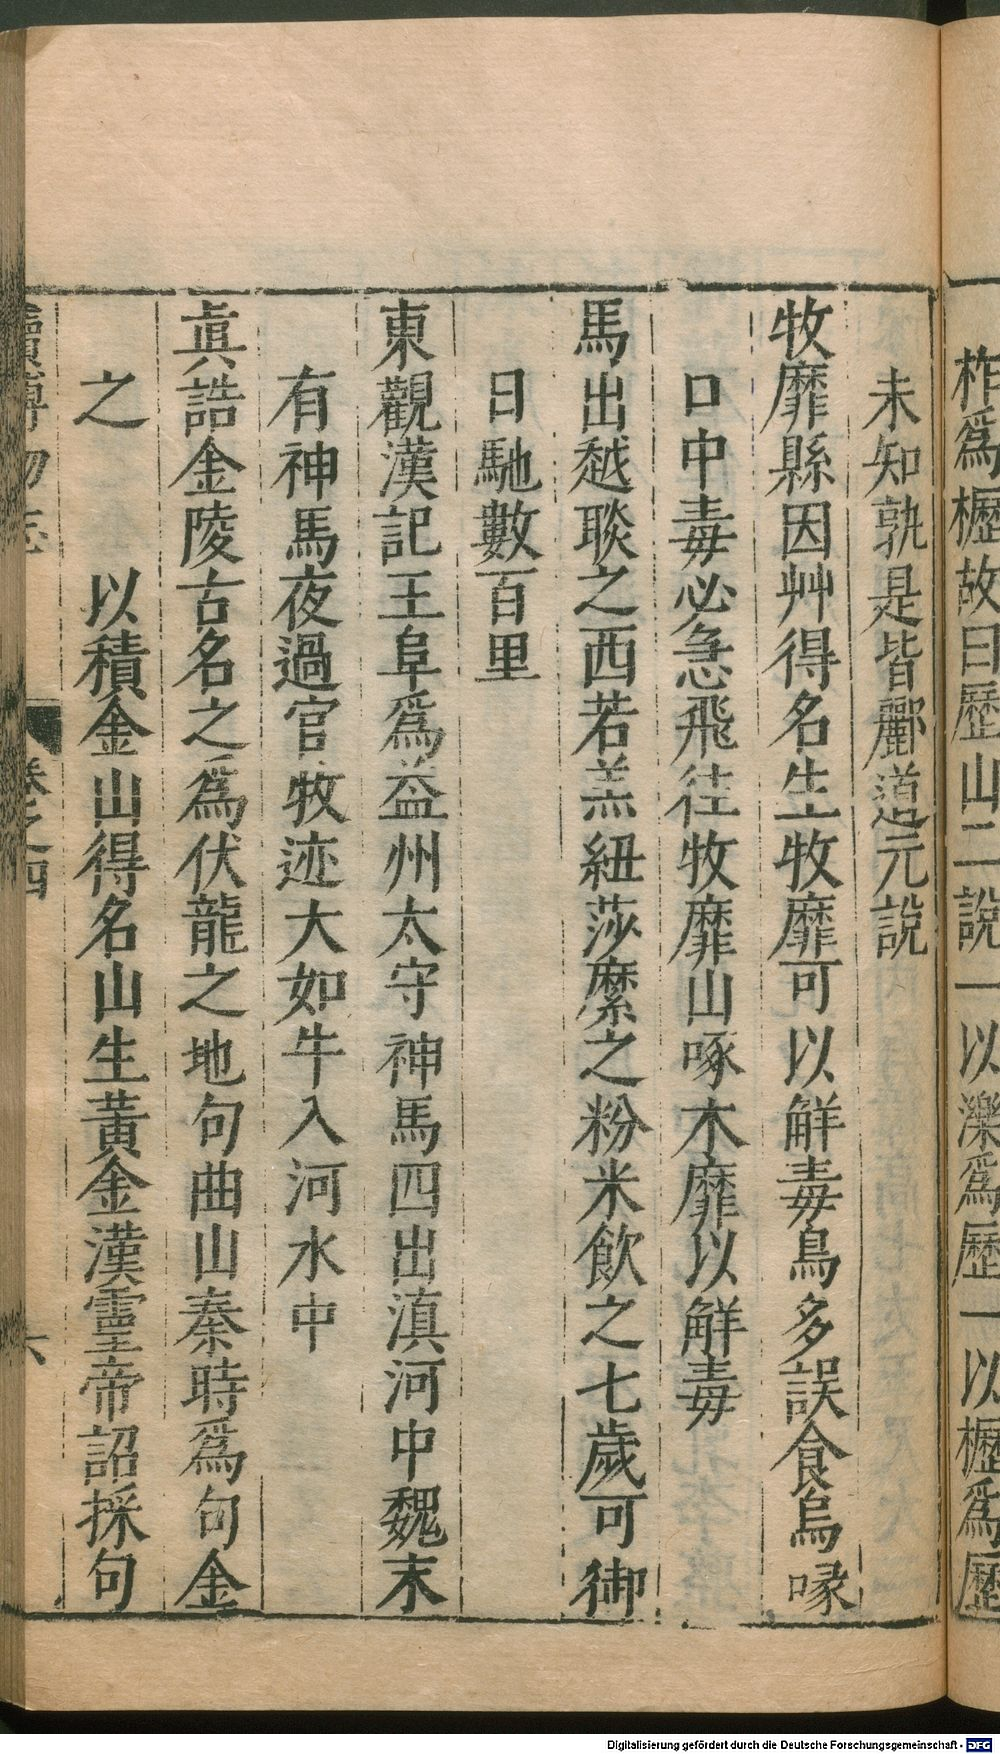 柞爲櫪故曰歷山二說一以濼爲歷一以櫪爲歷
未知孰是皆酈道元說
牧靡縣因艸得名生牧靡可以解毒鳥多誤食烏喙
口中毒必急飛往牧靡山啄木靡以解毒
馬出越睒之西若羔紐莎縻之粉米飲之七歲可御
日馳數百里
東觀漢記王阜爲益州太守神馬四出滇河中魏末
有神馬夜過官牧迹大如牛入河水中
眞誥金陵古名之爲伏龍之地句曲山秦時爲句金
之　　以積金山得名山生黃金漢靈帝詔採句
續博物志
卷之四
六
Digitalisierung gefördert durch die Deutsche Forschungsgemeinschaft - DFG